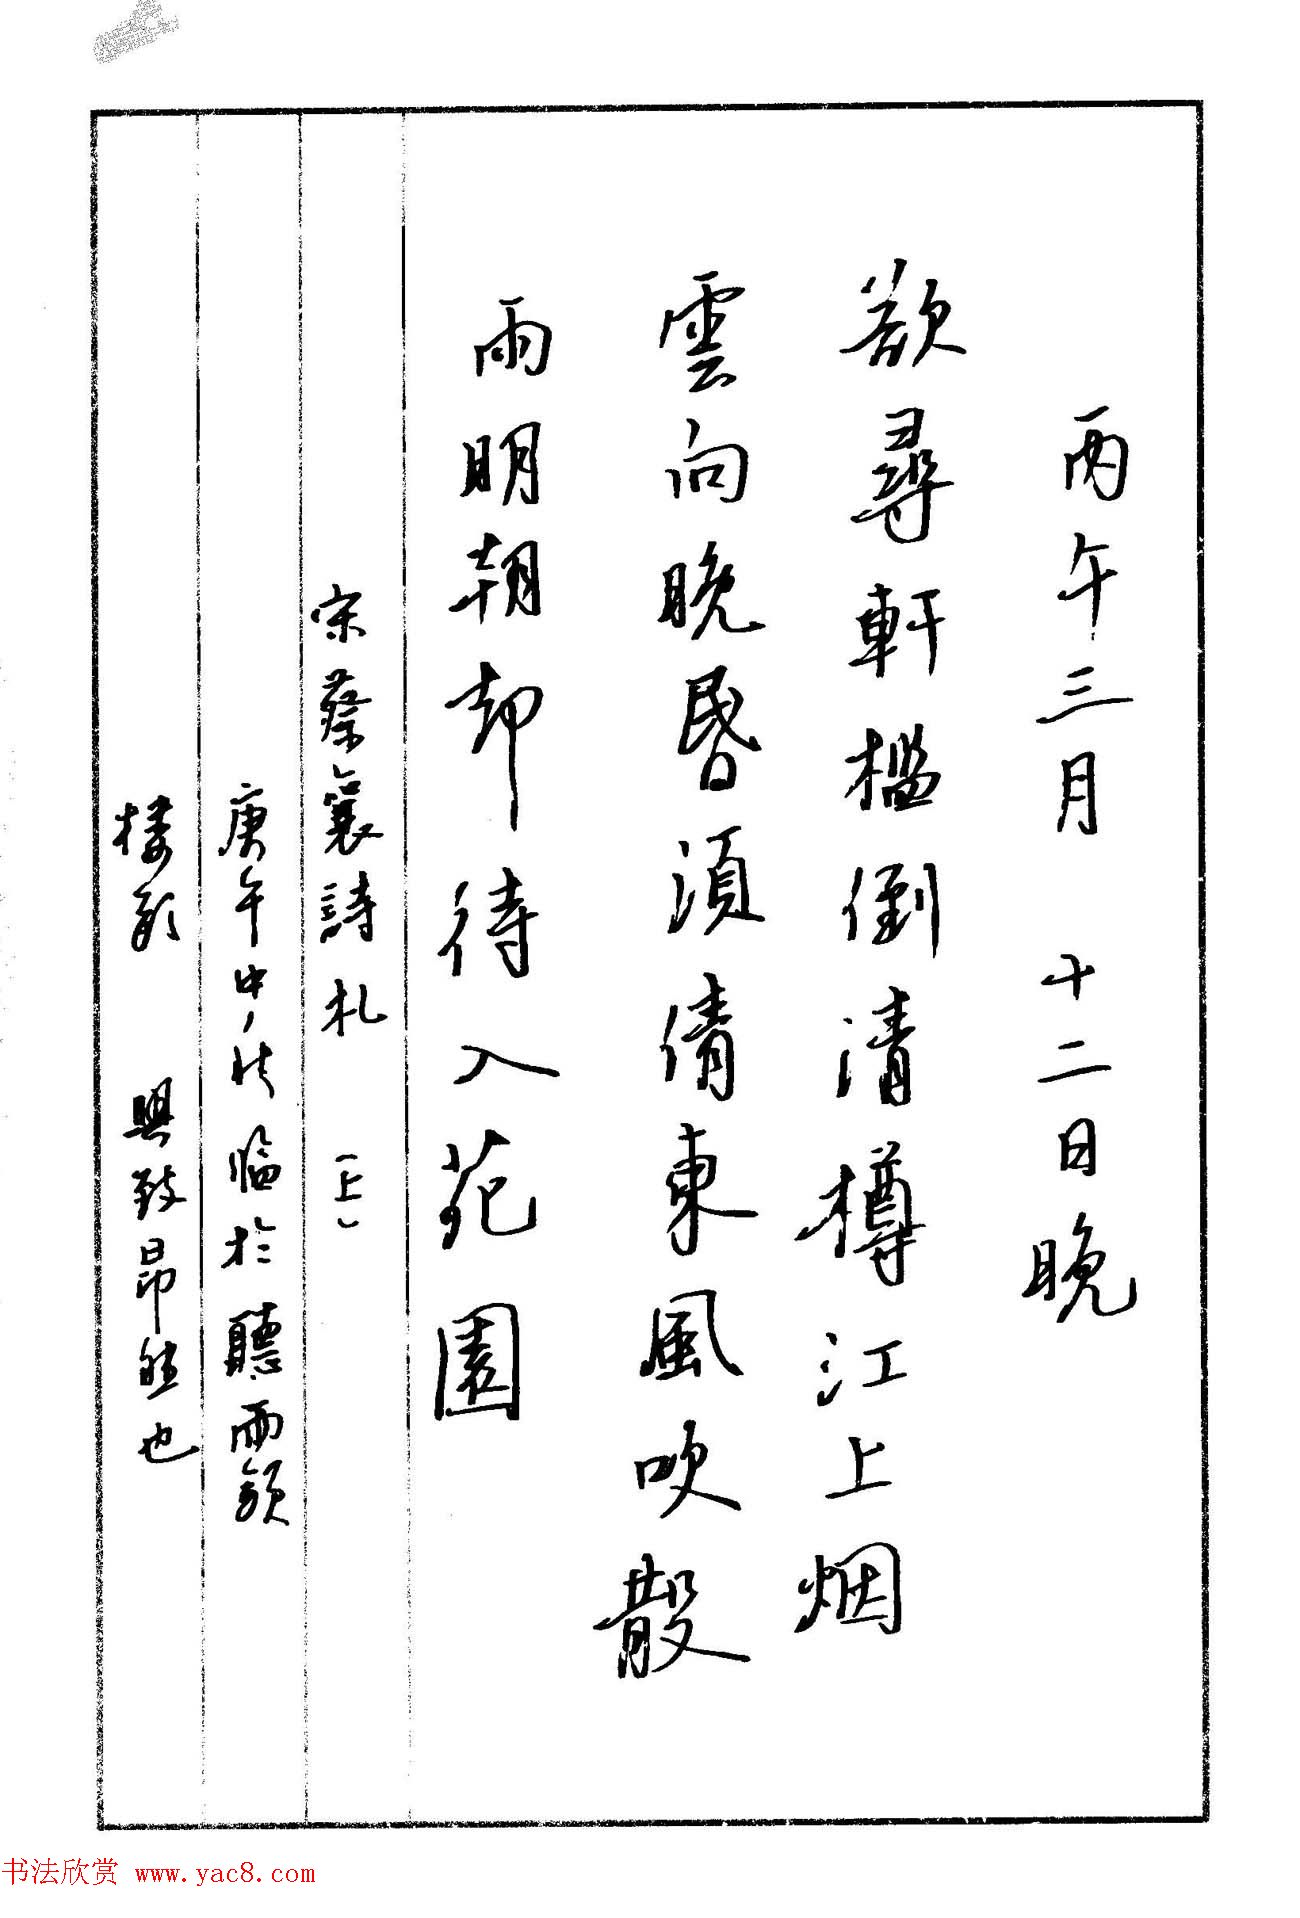 丙午三月十二日晚
欲尋軒檻倒清樽江上烟
雲向晚昏須倩東風吹散
雨明朝却待入花園
宋蔡襄詩札（上）
庚午中秋临於聽雨
楼 興致昂然也
书法欣赏 www.yac8.com